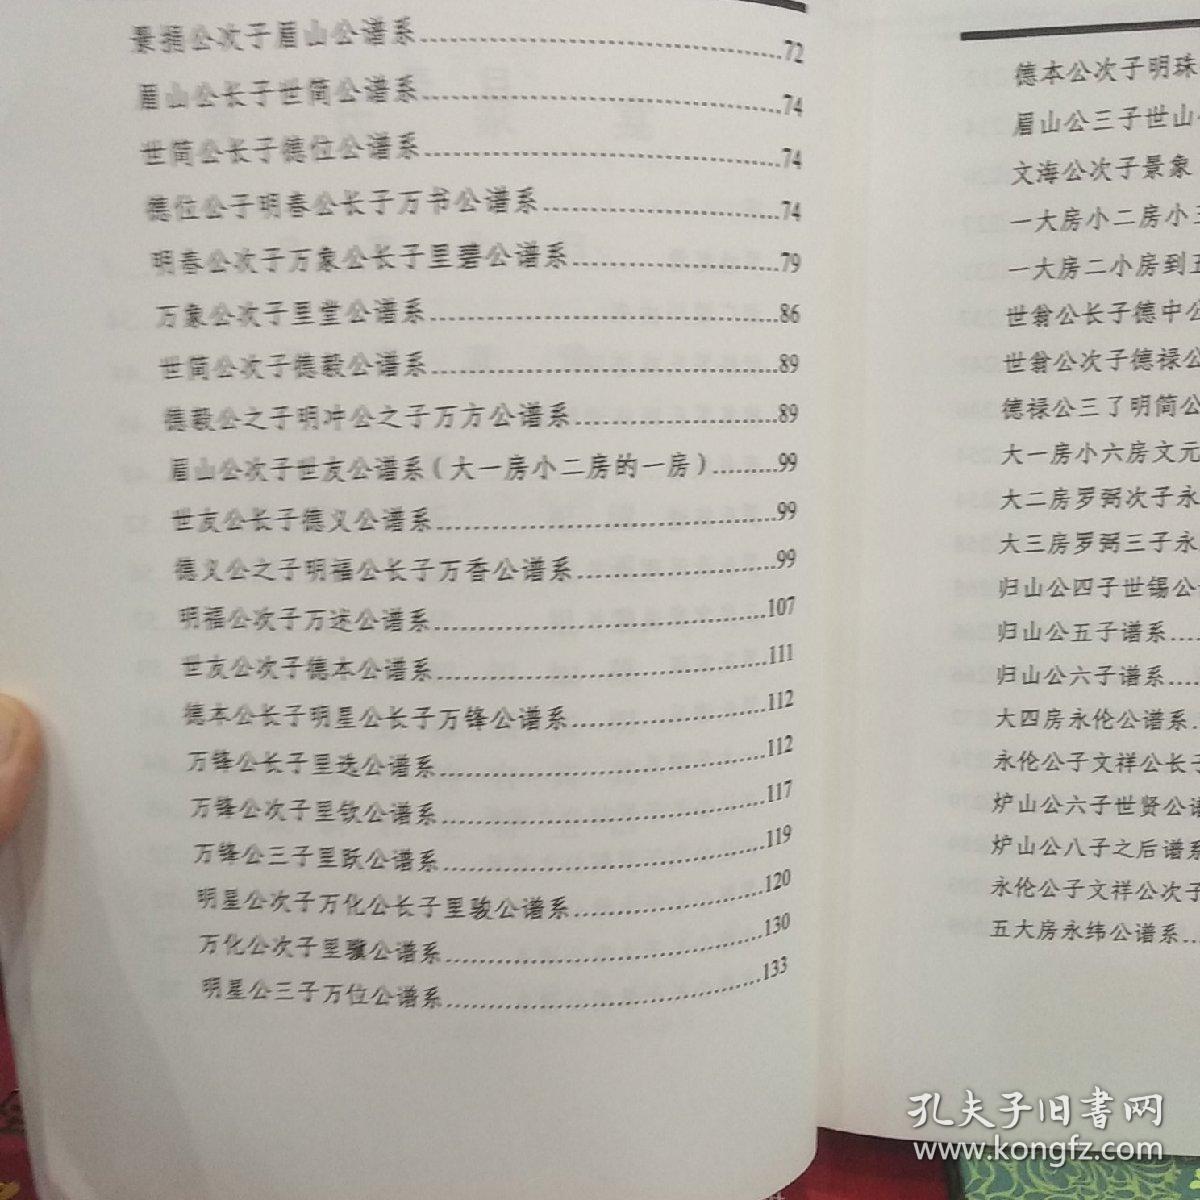 景捅公次子眉山公谱系 72
眉山公长子世简公谱系 74
世简公长子德位公谱系 74
德位公子明春公长子万书公谱系 74
明春公次子万象公长子里碧公谱系 79
万象公次子里堂公谱系 86
世简公次子德毅公谱系 89
德毅公之子明冲公之子万方公谱系 89
眉山公次子世友公谱系(大一房小二房的一房) 99
世友公长子德义公谱系 99
德义公之子明福公长子万香公谱系 99
明福公次子万迷公谱系 107
世友公次子德本公谱系 111
德本公长子明星公长子万锋公谱系 112
万锋公长子里选公谱系 112
万锋公次子里钦公谱系 117
万锋公三子里跃公谱系 119
明星公次子万化公长子里骏公谱系 120
万化公次子里骥公谱系 130
明星公三子万位公谱系 133
德本公次子明珠
眉山公三子世山
文海公次子景象
一大房小二房小
一大房二小房到五
世翁公长子德中公
世翁公次子德禄公
德禄公三了明简公
大一房小六房文元
大二房罗弼次子永
大三房罗弼三子永
归山公四子世锡公
归山公五子谱系
归山公六子谱系
大四房永伦公谱系
永伦公子文祥公长子
炉山公六子世贤公谱
炉山公八子之后谱系
永伦公子文祥公次子
五大房永纬公谱系
孔夫子旧书网
www.kongfz.com